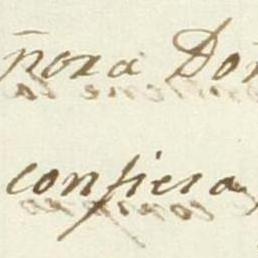 ñora Don
confiesa